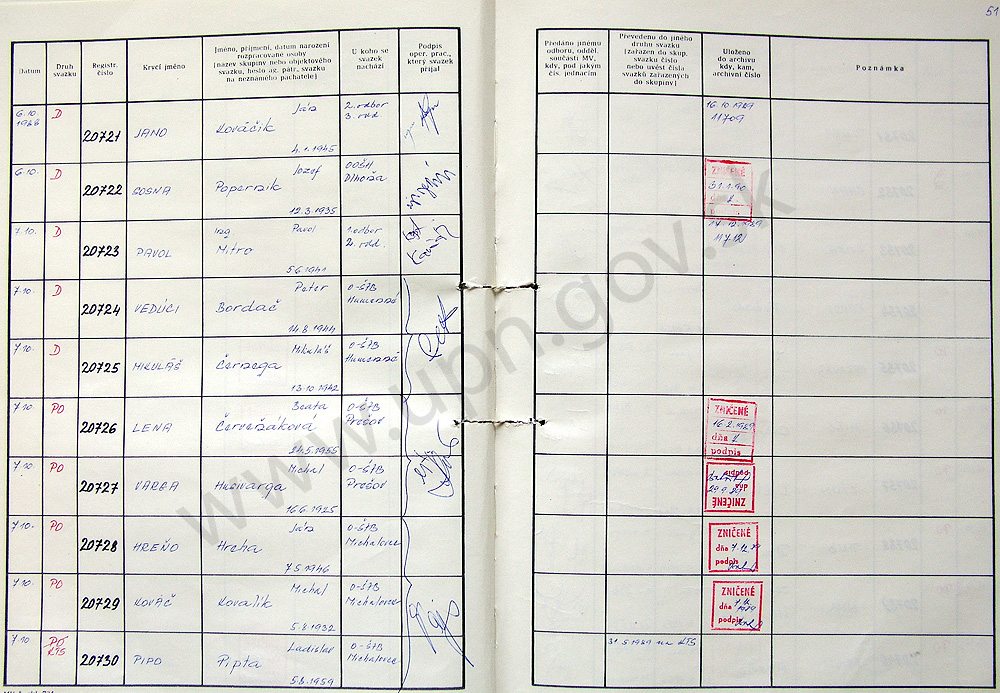 51
Datum
Druh
svazku
Registr.
číslo
Krycí jméno
Jméno, příjmení, datum narození
rozpracované osoby
[název skupiny nebo objektového
svazku, heslo ag. pátr. svazku
na neznámého pachatele]
U koho se
svazek
nachází
Podpis
oper. prac.,
který svazek
přijal
Předáno jinému
odboru, odděl.
součásti MV,
kdy, pod jakým
čís. jednacím
Převedeno do jiného
druhu svazku
[zařazen do skup.
svazku číslo
nebo uvést čísla
svazků zařazených
do skupiny]
Uloženo
do archivu
kdy, kam,
archivní číslo
Poznámka
6.10
1988
D
20721
JANO
Ján
Kováčik
4.1.1945
2. odbor
3. odd.
16.10.1989
11709
6.10.
D
20722
SOSNA
Jozef
Popernik
12.3.1935
OOŠH
Dlhoňa
ZNIČENÉ
31.1.90
7.10.
D
20723
PAVOL
Ing
Pavol
Mitro
5.6.1941
1. odbor
2. odd.
11712
7.10.
D
20724
VEDÚCI
Peter
Bordač
14.8.1944
O-ŠtB
Humenné
7.10.
D
20725
MIKULÁŠ
Mikuláš
Černega
13.10.1942
O-ŠtB
Humenné
7.10.
PO
20726
LENA
Beata
Červeňáková
24.5.1955
O-ŠtB
Prešov
ZNIČENÉ
16.2.1989
dňa
podpis
7.10
PO
20727
VARGA
Michal
Husivarga
16.6.1925
O-ŠtB
Prešov
ZNIČENÉ
dňa
podpis
7.10.
PO
20728
HREŇO
Ján
Hreha
7.5.1946
O-ŠtB
Michalovce
ZNIČENÉ
dňa 7.12.89
podpis
7.10.
PO
20729
KOVÁČ
Michal
Kovalik
5.8.1932
O-ŠtB
Michalovce
ZNIČENÉ
dňa
podpis
7.10
PO
KTS
20730
PIPO
Ladislav
Pipta
5.8.1959
O-ŠtB
Michalovce
31.5.1989 na KTS
www.upn.gov.sk